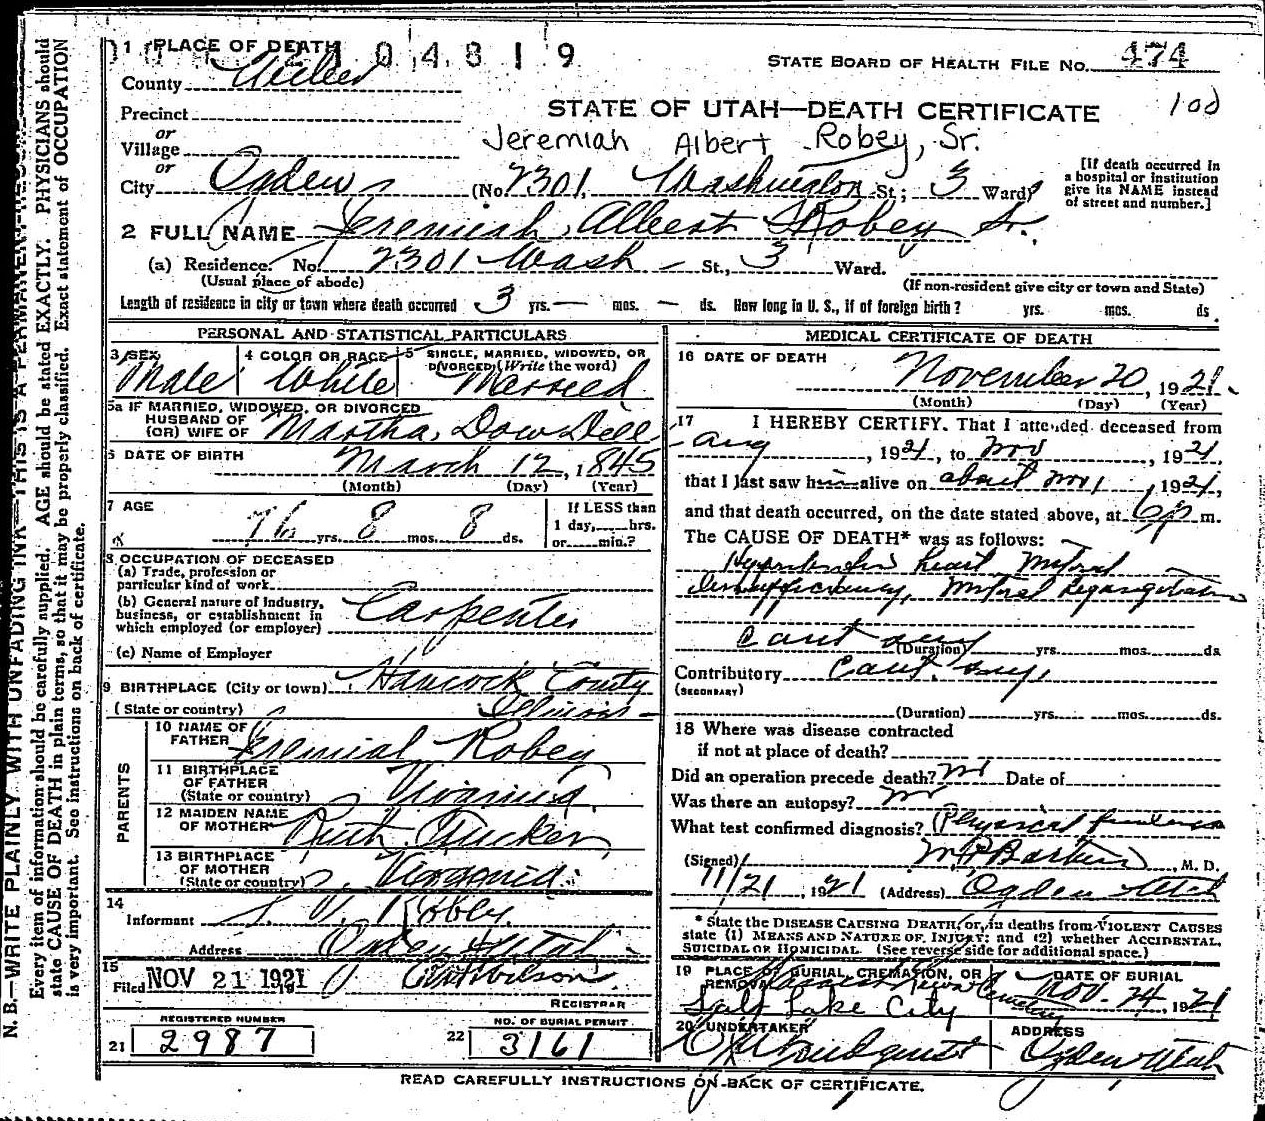 N. B.—WRITE PLAINLY WITH UNFADING INK—THIS IS A PERMANENT
Every item of information should be carefully supplied. AGE should be stated EXACTLY. PHYSICIANS should
state CAUSE OF DEATH in plain terms, so that it may be properly classified. Exact statement of OCCUPATION
is very important. See instructions on back of certificate.
04819
1 PLACE OF DEATH
STATE BOARD OF HEALTH FILE NO. 474
County Weber
STATE OF UTAH—DEATH CERTIFICATE
100
Precinct
or
Jeremiah Albert Robey, Sr.
Village
or
City Ogden (No 2301 Washington St; 3 Ward)
[If death occurred in
a hospital or institution
give its NAME instead
of street and number.]
2 FULL NAME Jeremiah Albert Robey Sr.
(a) Residence. No. 2301 Wash St., 3 Ward.
(Usual place of abode)
(If non-resident give city or town and State)
Length of residence in city or town where death occurred 3 yrs. — mos. — ds. How long in U. S., if of foreign birth? yrs. mos. ds.
PERSONAL AND STATISTICAL PARTICULARS
3 SEX
Male
4 COLOR OR RACE
White
5 SINGLE, MARRIED, WIDOWED, OR
DIVORCED (Write the word)
Married
5a IF MARRIED, WIDOWED, OR DIVORCED
HUSBAND OF
(OR) WIFE OF Martha Dowdell
6 DATE OF BIRTH March 12, 1845
(Month) (Day) (Year)
7 AGE
76 yrs. 8 mos. 8 ds.
If LESS than
1 day, hrs.
or min.?
8 OCCUPATION OF DECEASED
(a) Trade, profession or
particular kind of work
(b) General nature of Industry,
business, or establishment in
which employed (or employer) Carpenter
(c) Name of Employer
9 BIRTHPLACE (City or town) Hancock County
(State or country) Illinois
PARENTS
10 NAME OF
FATHER Jeremiah Robey
11 BIRTHPLACE
OF FATHER
(State or country) Virginia
12 MAIDEN NAME
OF MOTHER Ruth Tucker
13 BIRTHPLACE
OF MOTHER
(State or country) Virginia
14
Informant Robey
Address Ogden Utah
15
Filed NOV 21 1921 Wilson
REGISTRAR
REGISTERED NUMBER
21 2987
NO. OF BURIAL PERMIT
22 3161
MEDICAL CERTIFICATE OF DEATH
16 DATE OF DEATH
November 20, 1921
(Month) (Day) (Year)
17 I HEREBY CERTIFY. That I attended deceased from
Aug, 1921, to Nov, 1921,
that I last saw him alive on about Nov 1, 1921,
and that death occurred, on the date stated above, at 6 p m.
The CAUSE OF DEATH* was as follows:
heart Mitral
Insufficiency, Mitral Regurgitation
Cant say
(Duration) yrs. mos. ds.
Contributory Cant say.
(SECONDARY)
(Duration) yrs. mos. ds.
18 Where was disease contracted
if not at place of death?
Did an operation precede death? no Date of
Was there an autopsy? no
What test confirmed diagnosis? Physical
(Signed), M. D.
11/21, 1921 (Address) Ogden Utah
* State the DISEASE CAUSING DEATH, or, in deaths from VIOLENT CAUSES
state (1) MEANS AND NATURE OF INJURY; and (2) whether ACCIDENTAL,
SUICIDAL or HOMICIDAL. (See reverse side for additional space.)
19 PLACE OF BURIAL, CREMATION, OR
REMOVAL Cemetery
Salt Lake City
DATE OF BURIAL
Nov. 24, 1921
20 UNDERTAKER
Lindquist
ADDRESS
Ogden, Utah
READ CAREFULLY INSTRUCTIONS ON BACK OF CERTIFICATE.